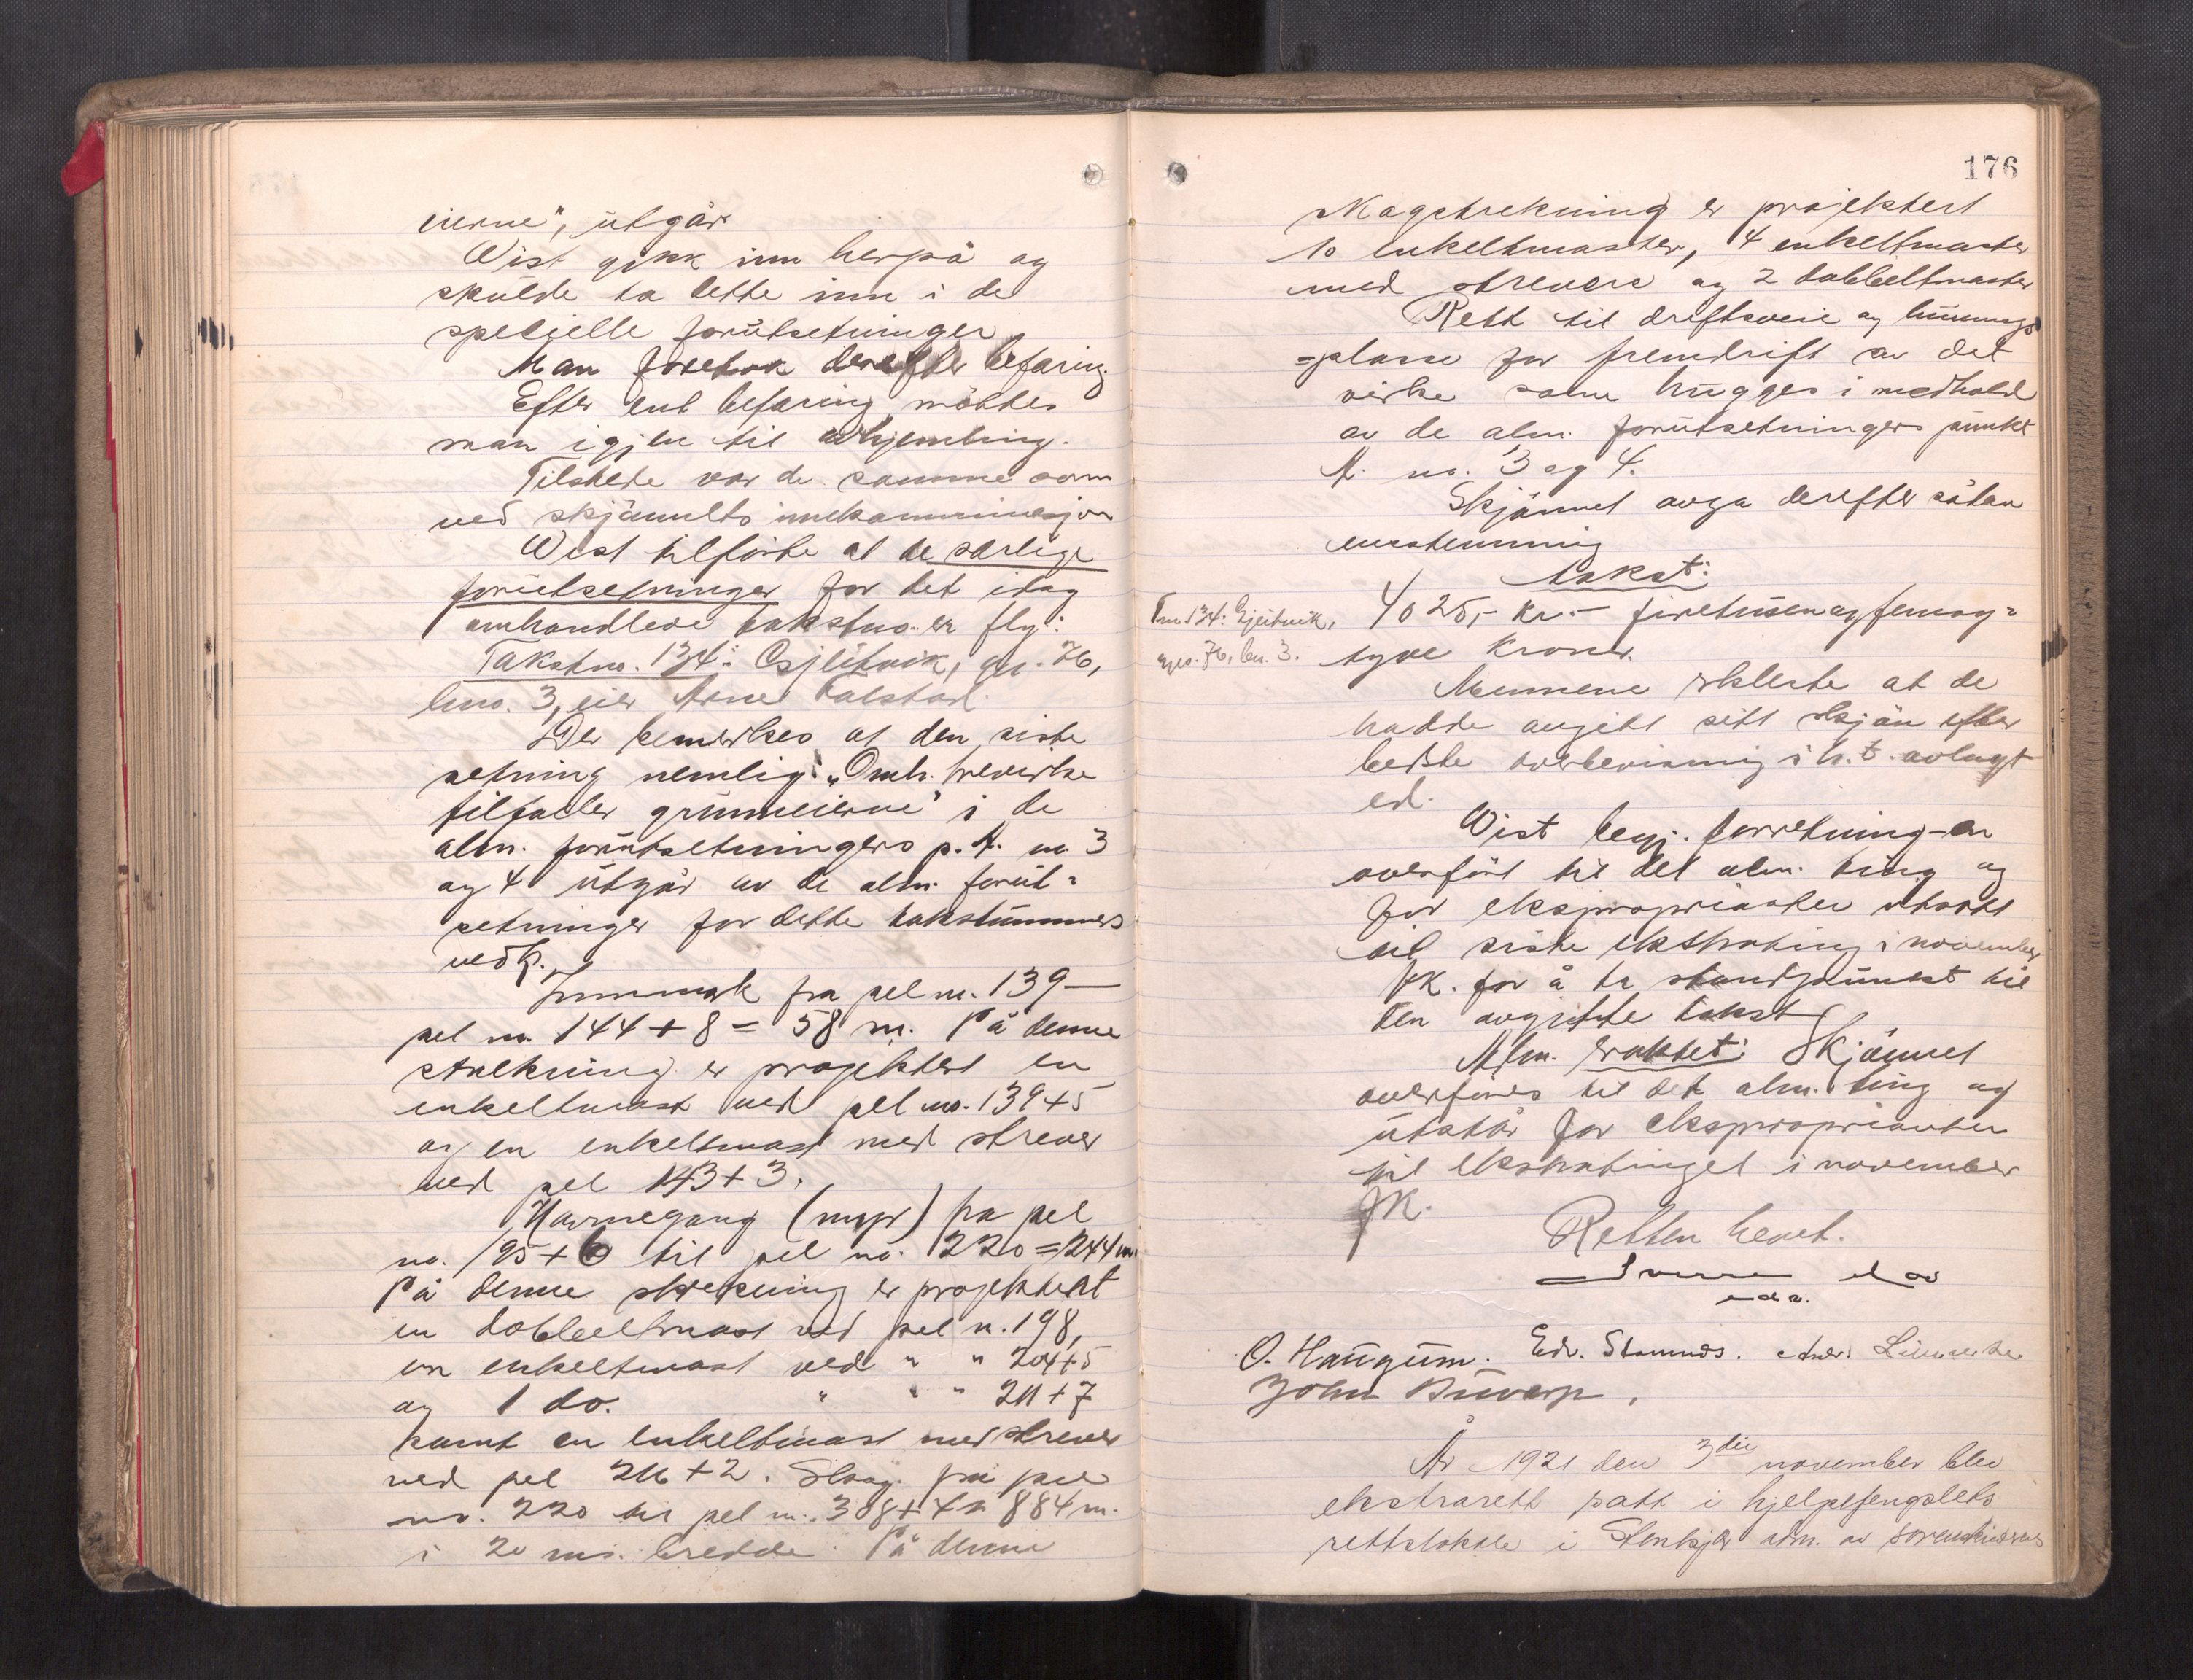 eierne", utgår
Wist gikk inn herpå og
skulde ta dette inn i de
specielle forutsetninger.
Man foretok derefter befaring.
Efter endt befaring møttes
man igjen til avhjemling.
Tilstede var de samme som
ved skjønnets
Wist tilførte at de særlige
forutsetninger for det idag
omhandlede takstno. er flg:
Takstno. 134: Gjeitvik, gn. 76,
bno. 3, eier Arne Falstad.
Der bemerkes at den siste
setning nemlig: „Omh. trevirke
tilfaller grunneierne" i de
alm. forutsetningers p. A. no 3
og 4 utgår av de alm. forut=
setninger for dette takstnummers
vedk.
Innmark fra pel no. 139 –
pel no. 144 + 8 = 58 m. På denne
strekning er projektert en
enkeltmast ved pel no. 139 + 5
og en enkeltmast med strever
ved pel 143 + 3.
Havnegang (myr) fra pel
no. 195 + 6 til pel no. 220 = 244 m.
På denne strekning er projektert
en dobbeltmast ved pel n. 198,
en enkeltmast ved " " 204+5
og 1 do. " " " 211 + 7
samt en enkeltmast med strever
ved pel 216 + 2. Skog fra pel
no. 220 til pel no. 308 + 4 = 884 m.
i 20 ms. bredde. På denne
176
skogstrekning er projektert
10 enkeltmaster, 4 enkeltmaster
med strevere og 2 dobbeltmaster
Rett til driftsveie og lunnings
=plasse for fremdrift av det
virke som hugges i medhold
av de alm. forutsetningers punkt
A. no. 3 og 4.
Skjønnet avga derefter sådan
enstemmig
takst:
Tno 134: Gjeitvik,
gno. 76, bn. 3.
4025,- kr. – firetusenogfemog=
tyve kroner.
Mennene erklerte at de
hadde avgitt sitt skjøn efter
bedste overbevisning i h.t. avlagt
ed.
Wist begj. forretningen
overført til det alm. ting og
for ekspropriaten utsatt
til siste ekstrating i november
fk. for å ta standpunkt til
den avgitte takst
Alm. vaktet: Skjønnet
overføres til det alm. ting og
utstår for ekspropriaten
til ekstratinget i november
fk.
Retten hevet.
O. Haugum. Edv. Stamnes.
John Buvarp.
År 1921 den 3die november blev
ekstrarett satt i hjelpefengslets
rettslokale i Stenkjær adm. av sorenskriveren